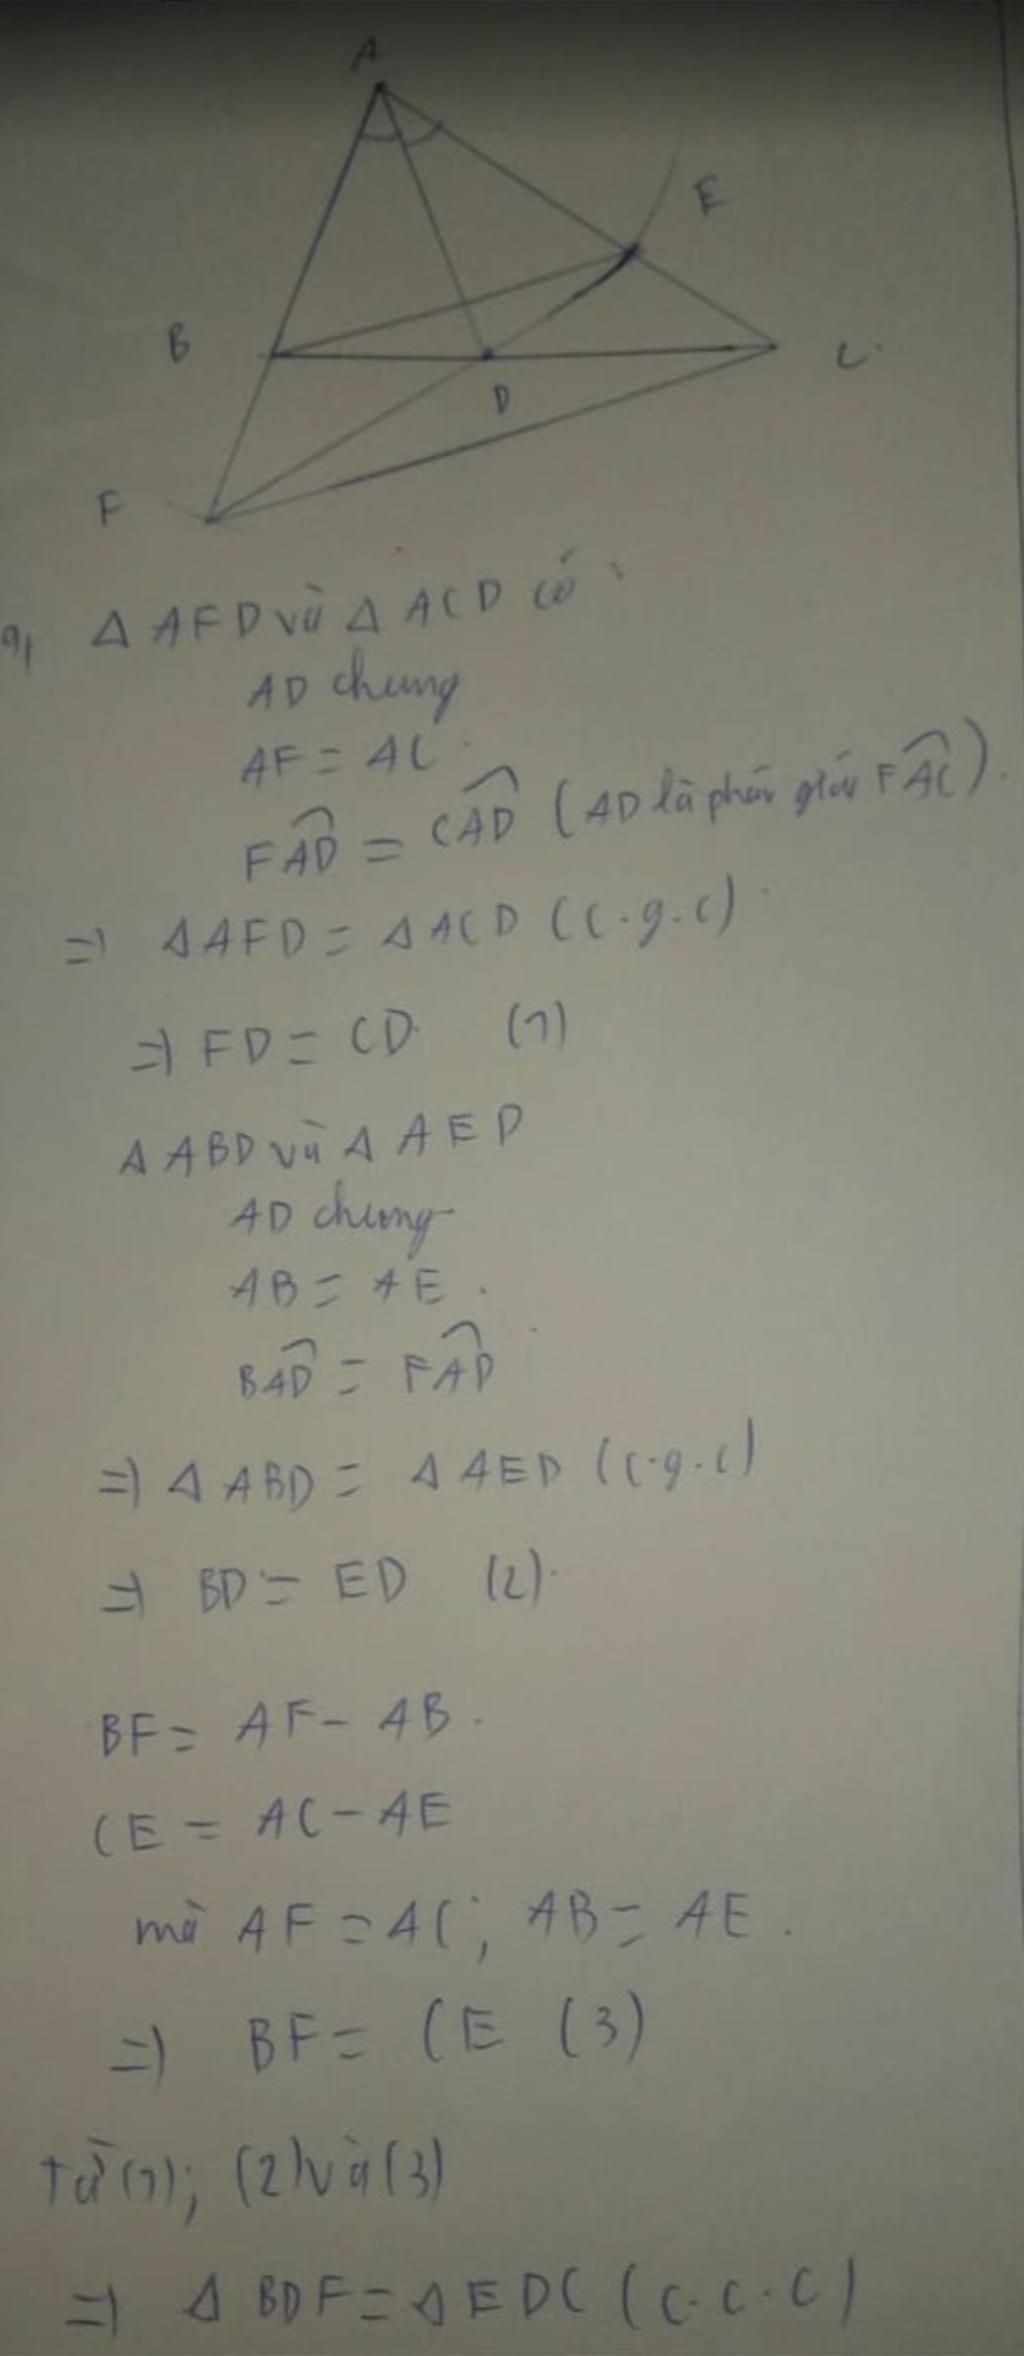 A
E
B
C
D
F
a, Δ AFD và Δ ACD có:
AD chung
AF = AC
FAD̂ = CAD̂ (AD là phân giác FAĈ).
=> ΔAFD = ΔACD (c.g.c)
=> FD = CD (1)
Δ ABD và Δ AED
AD chung
AB = AE.
BAD̂ = FAD̂
=> Δ ABD = Δ AED (c.g.c)
=> BD = ED (2).
BF = AF - AB.
CE = AC - AE
mà AF = AC; AB = AE.
=> BF = CE (3)
từ (1); (2) và (3)
=> Δ BDF = Δ EDC (c.c.c)